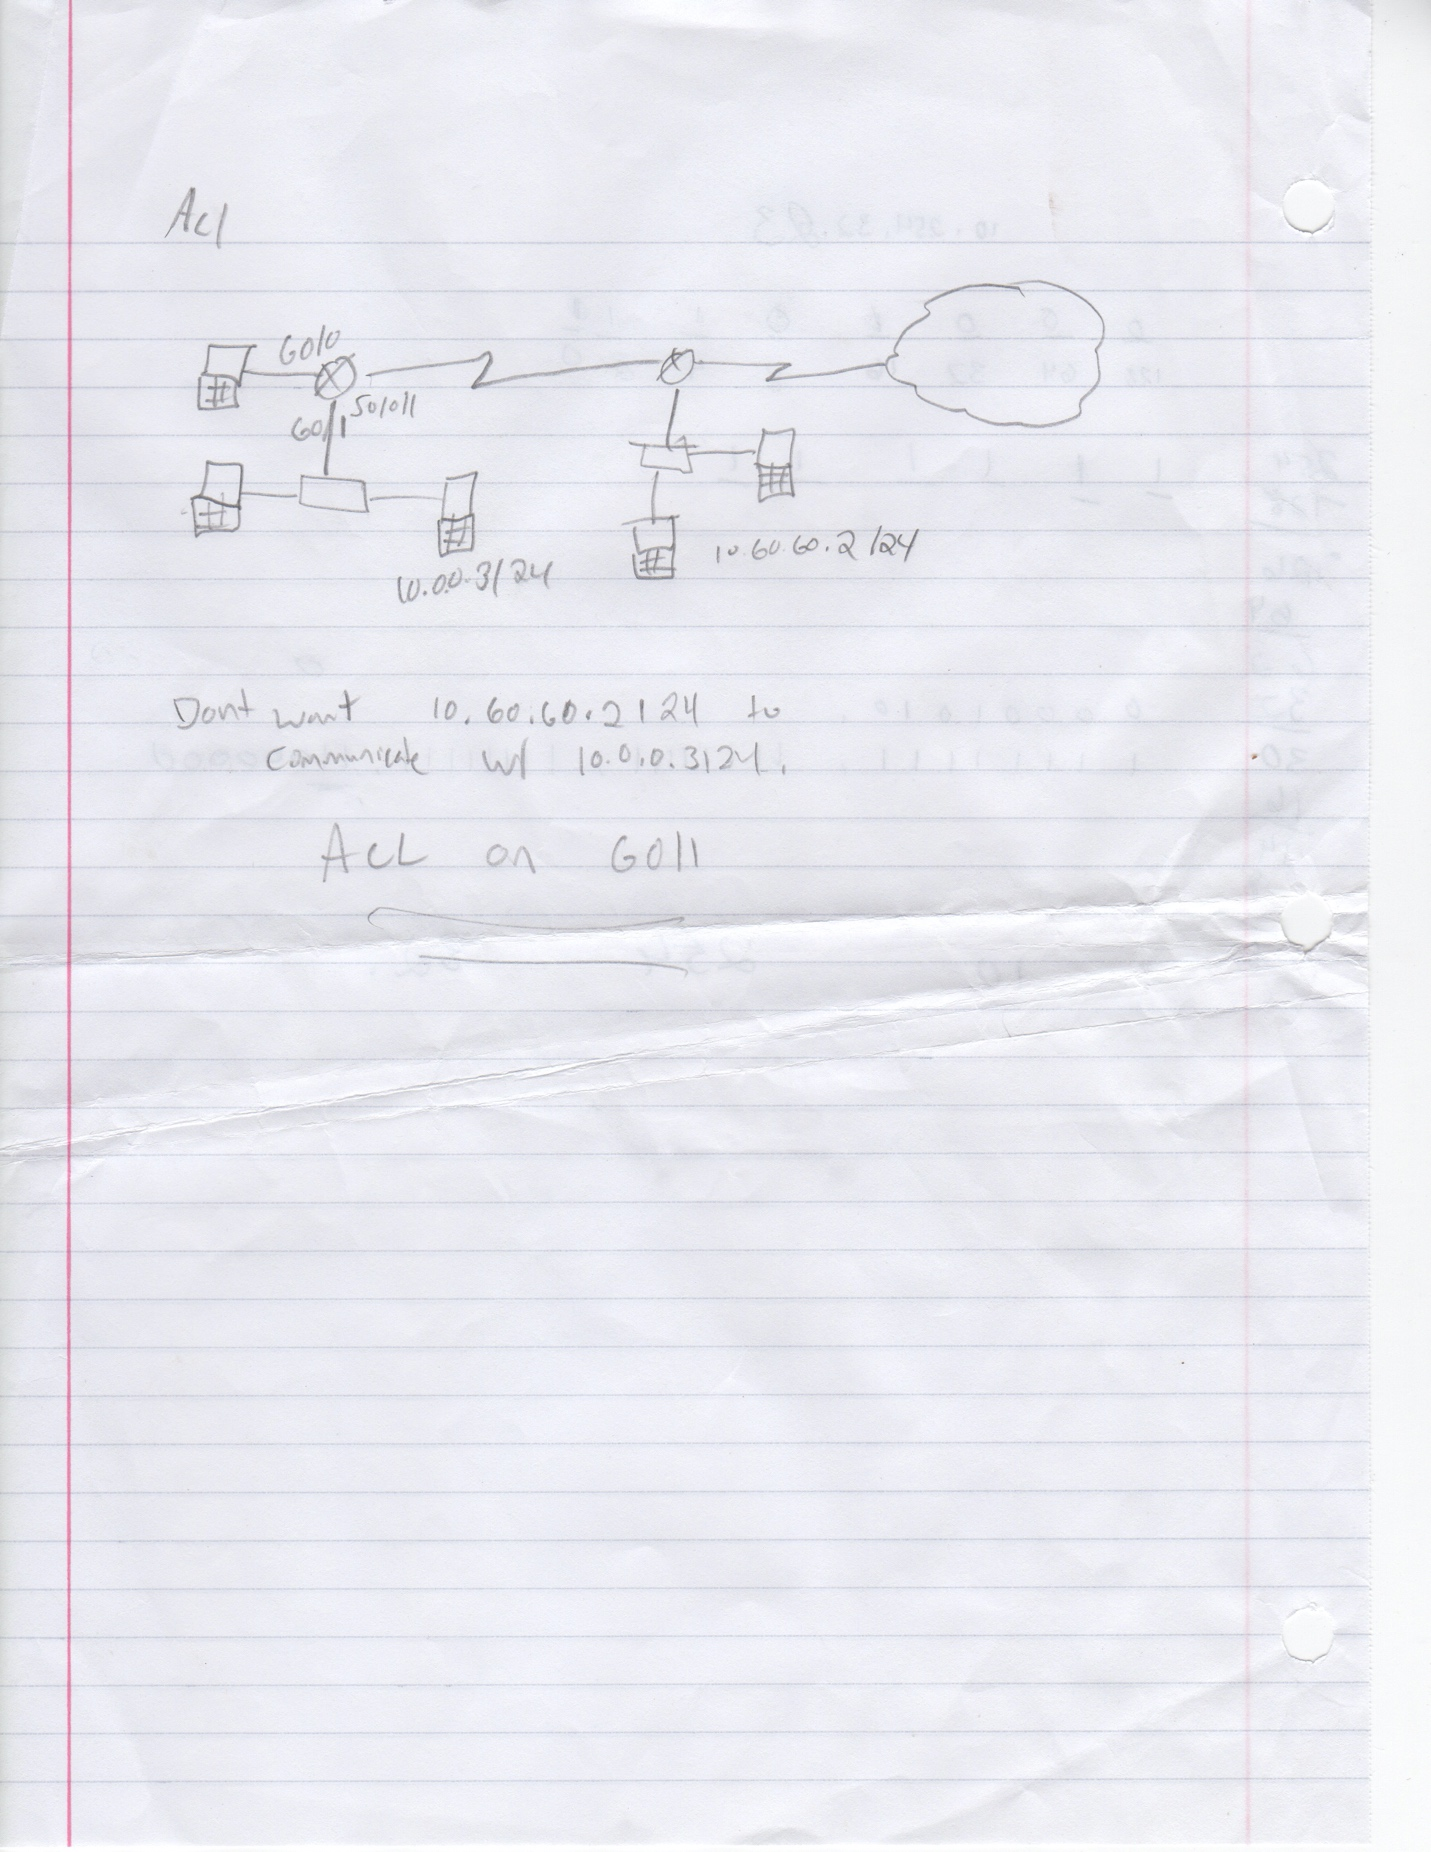 Acl
G0/0
S0/0/1
G0/1
10.60.60.2/24
10.0.0.3/24
Dont want 10.60.60.2/24 to
communicate w/ 10.0.0.3/24.
ACL on G0/1